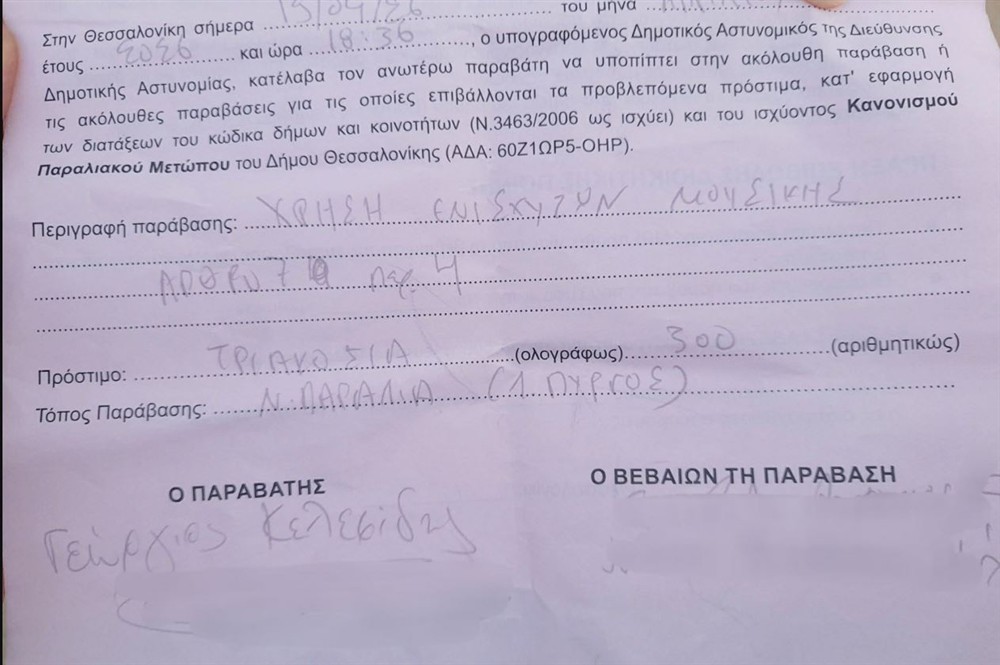 Στην Θεσσαλονίκη σήμερα 15/04/26 του μήνα
έτους 2026 και ώρα 18:36, ο υπογραφόμενος Δημοτικός Αστυνομικός της Διεύθυνσης
Δημοτικής Αστυνομίας, κατέλαβα τον ανωτέρω παραβάτη να υποπίπτει στην ακόλουθη παράβαση ή
τις ακόλουθες παραβάσεις για τις οποίες επιβάλλονται τα προβλεπόμενα πρόστιμα, κατ' εφαρμογή
των διατάξεων του κώδικα δήμων και κοινοτήτων (Ν.3463/2006 ως ισχύει) και του ισχύοντος Κανονισμού
Παραλιακού Μετώπου του Δήμου Θεσσαλονίκης (ΑΔΑ: 60Ζ1ΩΡ5-ΟΗΡ).
Περιγραφή παράβασης: ΧΡΗΣΗ ΕΝΙΣΧΥΤΩΝ ΜΟΥΣΙΚΗΣ
ΑΡΘΡΟ 7 παρ. 4
Πρόστιμο: ΤΡΙΑΚΟΣΙΑ (ολογράφως) 300 (αριθμητικώς)
Τόπος Παράβασης: Ν. ΠΑΡΑΛΙΑ (Λ. ΠΥΡΓΟΣ)
Ο ΠΑΡΑΒΑΤΗΣ Ο ΒΕΒΑΙΩΝ ΤΗ ΠΑΡΑΒΑΣΗ
Γεώργιος Κελεσίδης